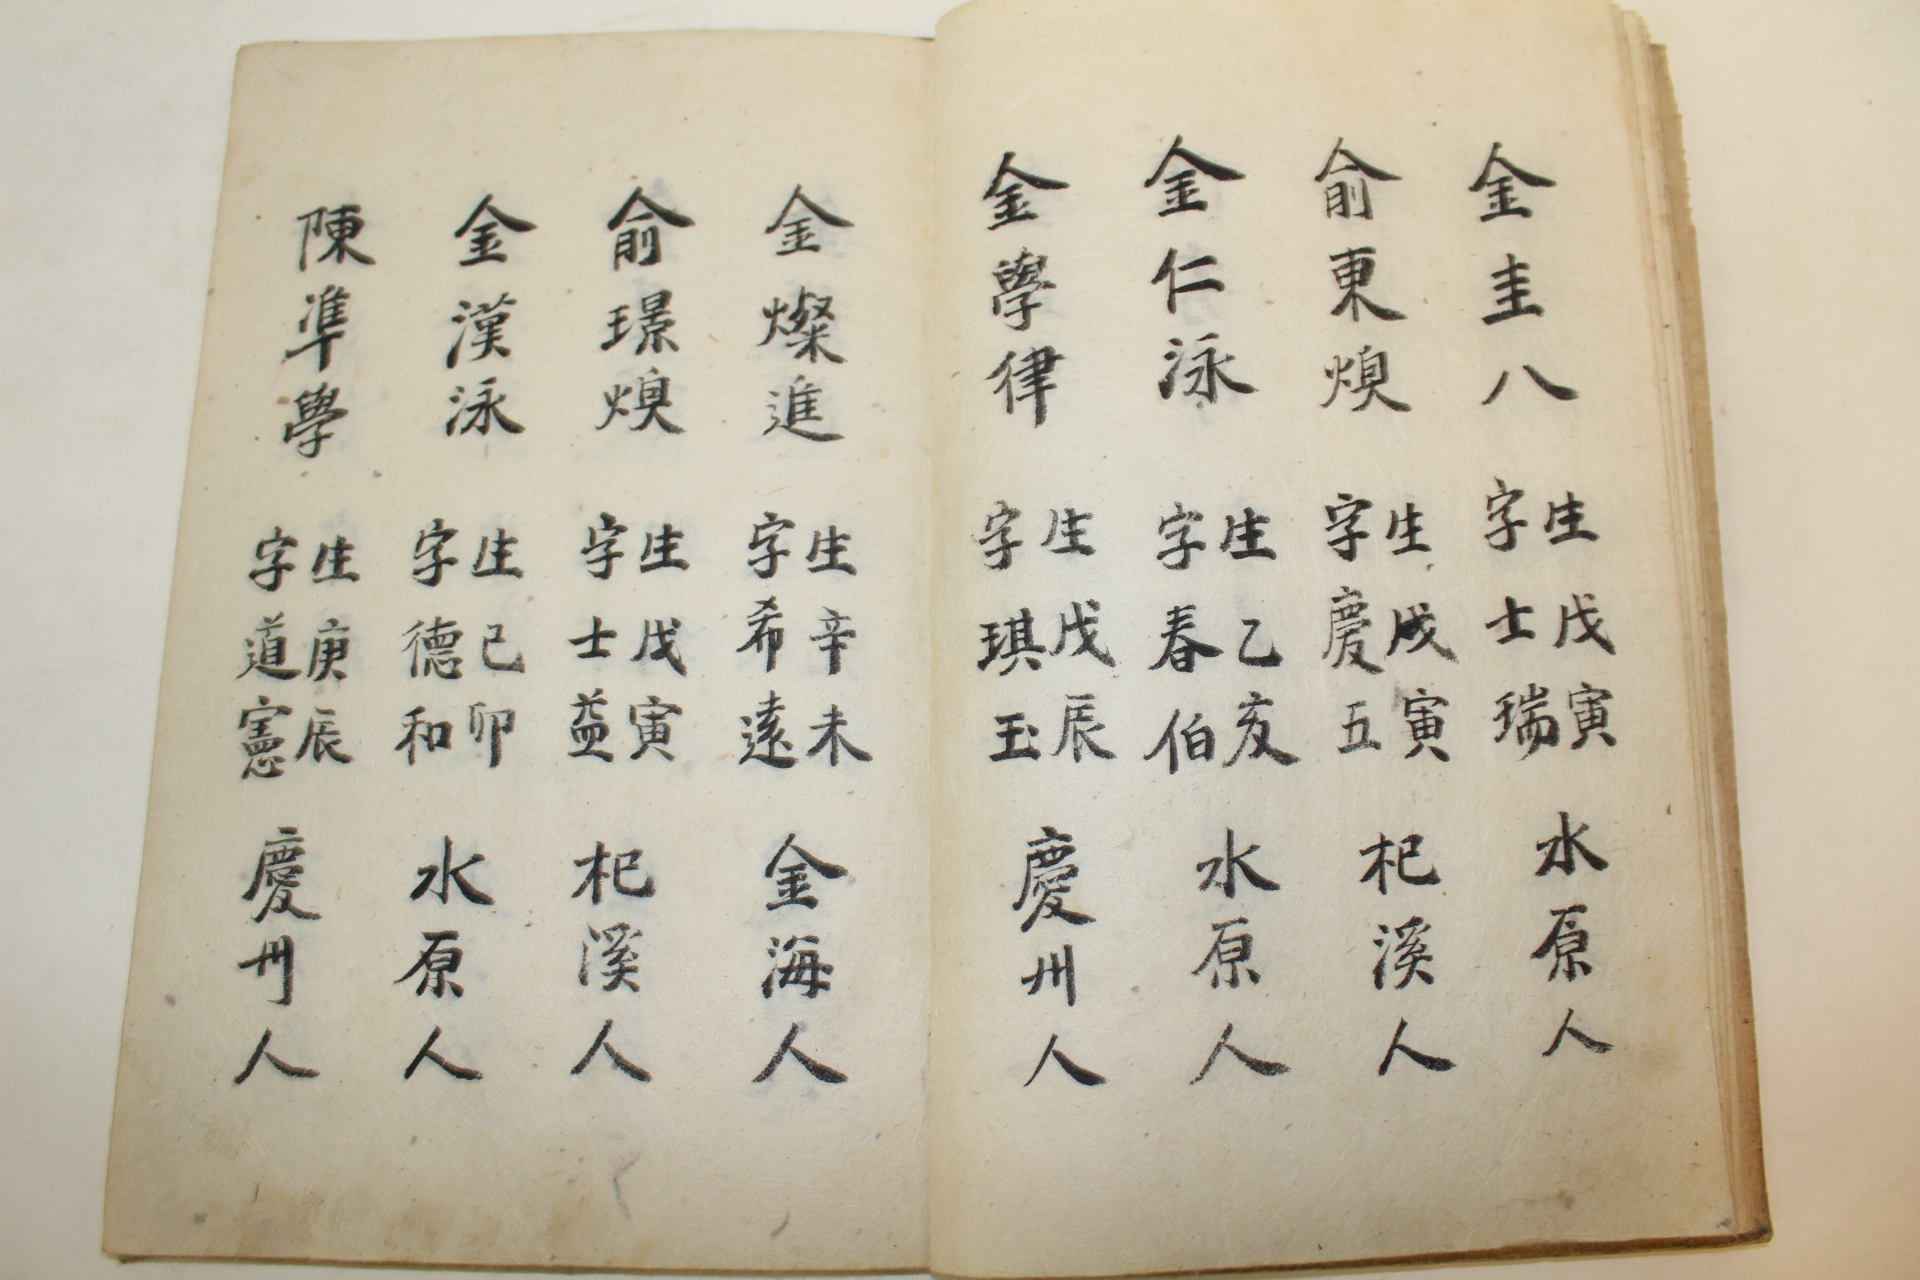 金圭八 生戊寅 字士瑞 水原人
俞東煥 生戊寅 字慶五 杞溪人
金仁泳 生乙亥 字春伯 水原人
金學律 生戊辰 字琪玉 慶州人
金燦進 生辛未 字希遠 金海人
俞璟煥 生戊寅 字士益 杞溪人
金漢泳 生己卯 字德和 水原人
陳準學 生庚辰 字道憲 慶州人